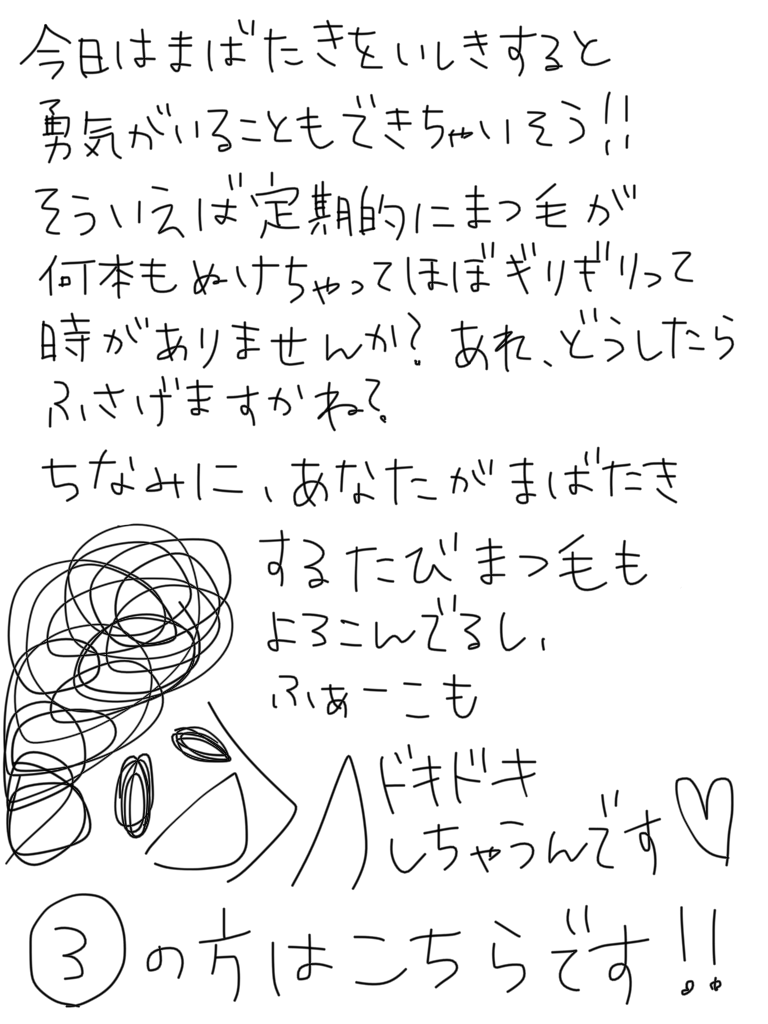 今日はまばたきをいしきすると
勇気がいることもできちゃいそう!!
そういえば定期的にまつ毛が
何本もぬけちゃってほぼギリギリって
時がありませんか?あれ、どうしたら
ふさげますかね?
ちなみに、あなたがまばたき
するたびまつ毛も
よろこんでるし、
ふぁーこも
ドキドキ
しちゃうんです♡
③の方はこちらです!!